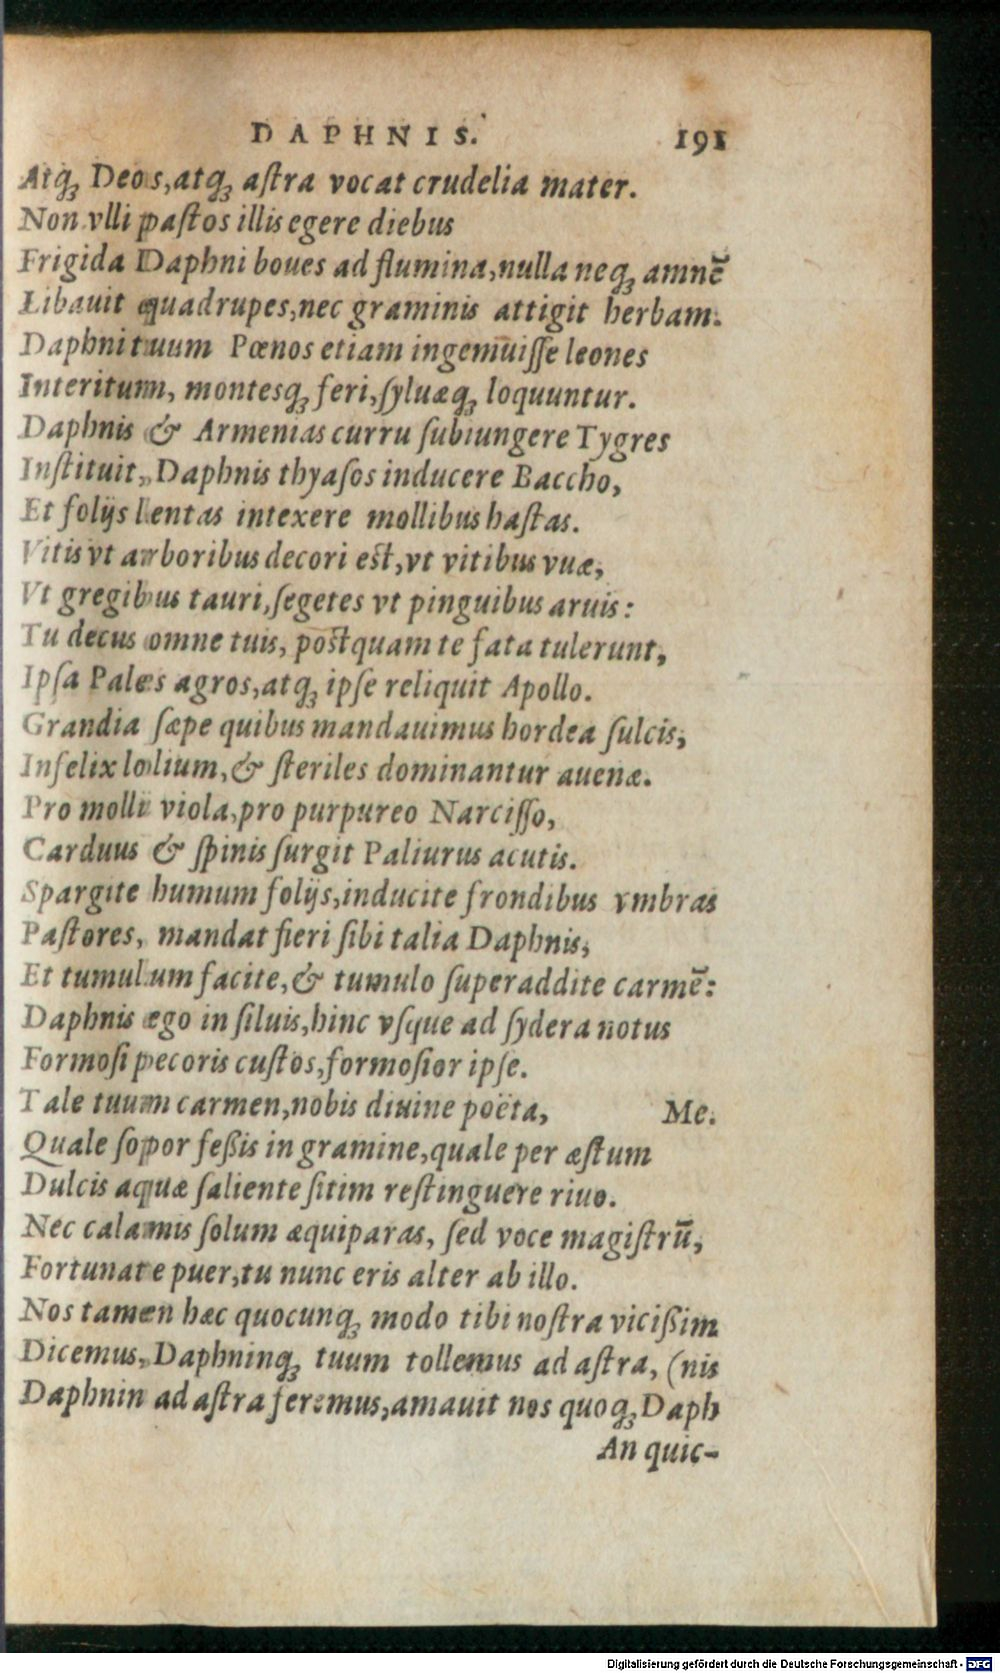 DAPHNIS. 191
Atq́ꝫ Deos, atq́ꝫ aſtra vocat crudelia mater.
Non vlli paſtos illis egere diebus
Frigida Daphni boues ad flumina, nulla neq́ꝫ amnē
Libauit quadrupes, nec graminis attigit herbam.
Daphni tuum Pœnos etiam ingemuiſſe leones
Interitum, montesq́ꝫ feri, ſyluæq́ꝫ loquuntur.
Daphnis & Armenias curru ſubiungere Tygres
Inſtituit, Daphnis thyaſos inducere Baccho,
Et folijs lentas intexere mollibus haſtas.
Vitis vt arboribus decori eſt, vt vitibus vuæ,
Vt gregibus tauri, ſegetes vt pinguibus aruis:
Tu decus omne tuis, poſtquam te fata tulerunt,
Ipſa Pales agros, atq́ꝫ ipſe reliquit Apollo.
Grandia ſæpe quibus mandauimus hordea ſulcis,
Infelix lolium, & ſteriles dominantur auenæ.
Pro molli viola, pro purpureo Narciſſo,
Carduus & ſpinis ſurgit Paliurus acutis.
Spargite humum folijs, inducite frondibus vmbras
Paſtores, mandat fieri ſibi talia Daphnis,
Et tumulum facite, & tumulo ſuperaddite carmē:
Daphnis ego in ſiluis, hinc vſque ad ſydera notus
Formoſi pecoris cuſtos, formoſior ipſe.
Tale tuum carmen, nobis diuine poëta, Me.
Quale ſopor feßis in gramine, quale per æſtum
Dulcis aquæ ſaliente ſitim reſtinguere riuo.
Nec calamis ſolum æquiparas, ſed voce magiſtrū,
Fortunate puer, tu nunc eris alter ab illo.
Nos tamen hæc quocunq́ꝫ modo tibi noſtra vicißim
Dicemus, Daphninq́ꝫ tuum tollemus ad aſtra, (nis
Daphnin ad aſtra feremus, amauit nos quoq́ꝫ Daph
An quic-
Digitalisierung gefördert durch die Deutsche Forschungsgemeinschaft - DFG